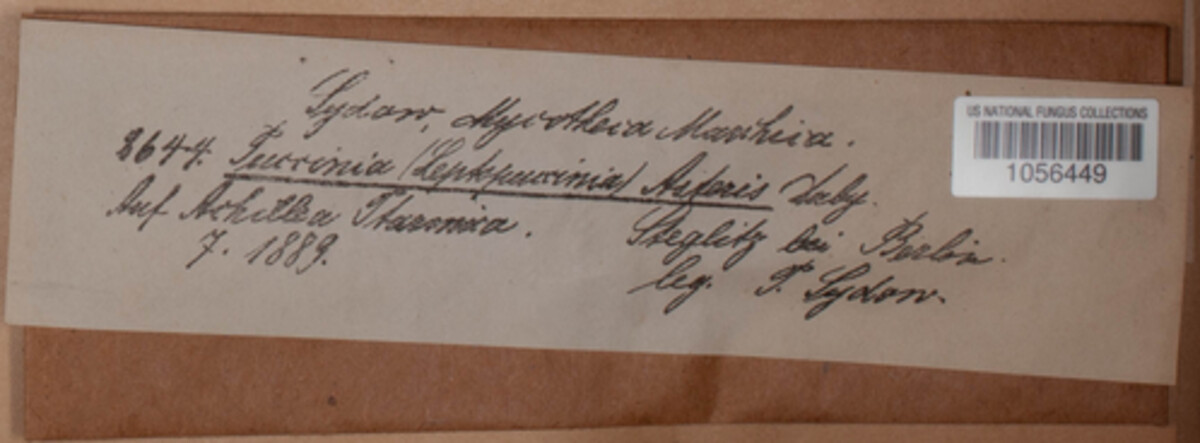 Sydow, Mycotheca Marchica.
2644. Puccinia (Leptopuccinia) Asteris Duby.
Auf Achillea Ptarmica. Steglitz bei Berlin.
7. 1889. leg. P. Sydow.
US NATIONAL FUNGUS COLLECTIONS
1056449